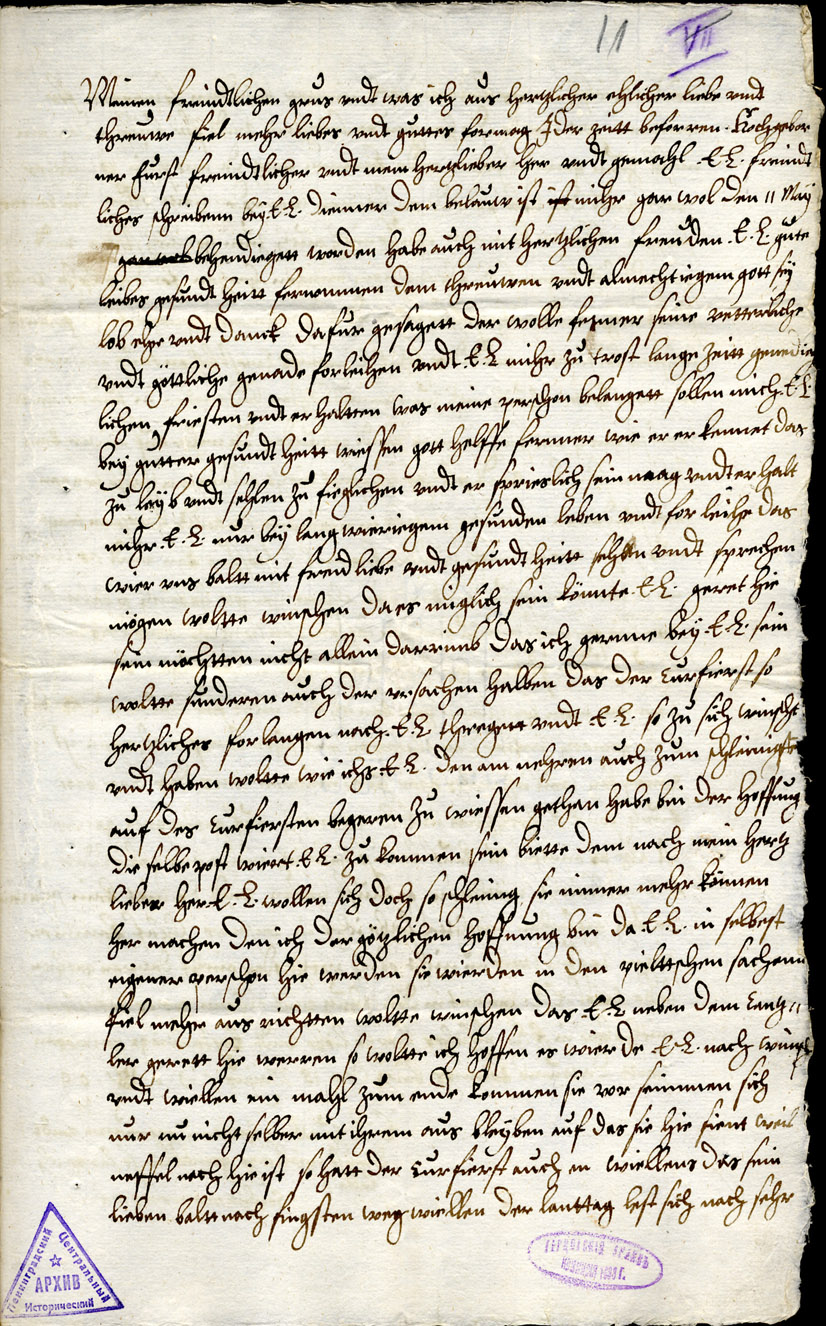 11 VII
Meinen freindtlichen grus undt was ich aus hertzlicher ehlicher liebe undt
threuwe fiel mehr liebes undt guttes formag Jder zeitt beforren. Hochgebor
ner Furst freindtlicher undt mein hertzlieber her undt gemahl. E L. freindt
liches schreibenn bey. E L. diennner dem belauw ist mihr gar wol den 11 May
behendiegett worden habe auch mit hertzlichen freuden. E. L gute
leibes gesundt heitt fernommen dem threuwen undt almechtiegem gott sey
lob ehre undt danck dafur gesagett der wolle ferner seine vetterliche
undt göttliche genade forleihen undt. E L mihr zu trost lange zeitt genedie
lichen friesten undt er haltten was meine perschon belangett sollen mich. E L
bey gutter gesundt heitt wiessen gott helffe ferner wie er er kennet das
zu leyb undt sehlen zu fieglichen undt er sprieslich sein maag undt er halt
mihr. E. L. nur bey lang wieriegem gesunden leben undt for leihe das
wier uns baltt mit freud liebe undt gesundt heitt sehen undt sprechen
mögen woltte winschen da es miglich sein könnte. E L. gerett hie
sein möchtten nicht allein darrimb das ich gerrne bey. E. L. sein
woltte sunderen auch der ursachen halben das der Curfierst so
hertzliches forlangen nach. E L thregett undt E L. so zu sich winscht
undt haben woltte wie ichs. E L. den am nehren auch zum schleinigste
auf des Curfiersten begeren zu wiessen gethan habe bin der hoffnung
die selbe post wiert. E L. zu kommen sein biette dem nach mein hertz
lieber her. E. L. wollen sich doch so schleinig sie immer mehr können
her machen den ich der götzlichen hoffnung bin da. E L. in selbest
eigener perschon hie werden sie wierden in den sachenn
fiel mehr aus richtten woltte winschen das E L neben dem Cantz
ler gerett hie werren so woltte ich hoffen es wierde. E L. nach winsch
undt wiellen ein mahl zum ende kommen sie vor seimmen sich
nur nu nicht selber mit ihrem aus bleyben auf das sie hie sient weil
neffel noch hie ist so hatt der Curfierst auch en wiellens das sein
lieben baltt nach fingsten weg wiellen der lanttag lest sich noch sehr
Ленинградский
Центральный
АРХИВ
Исторический